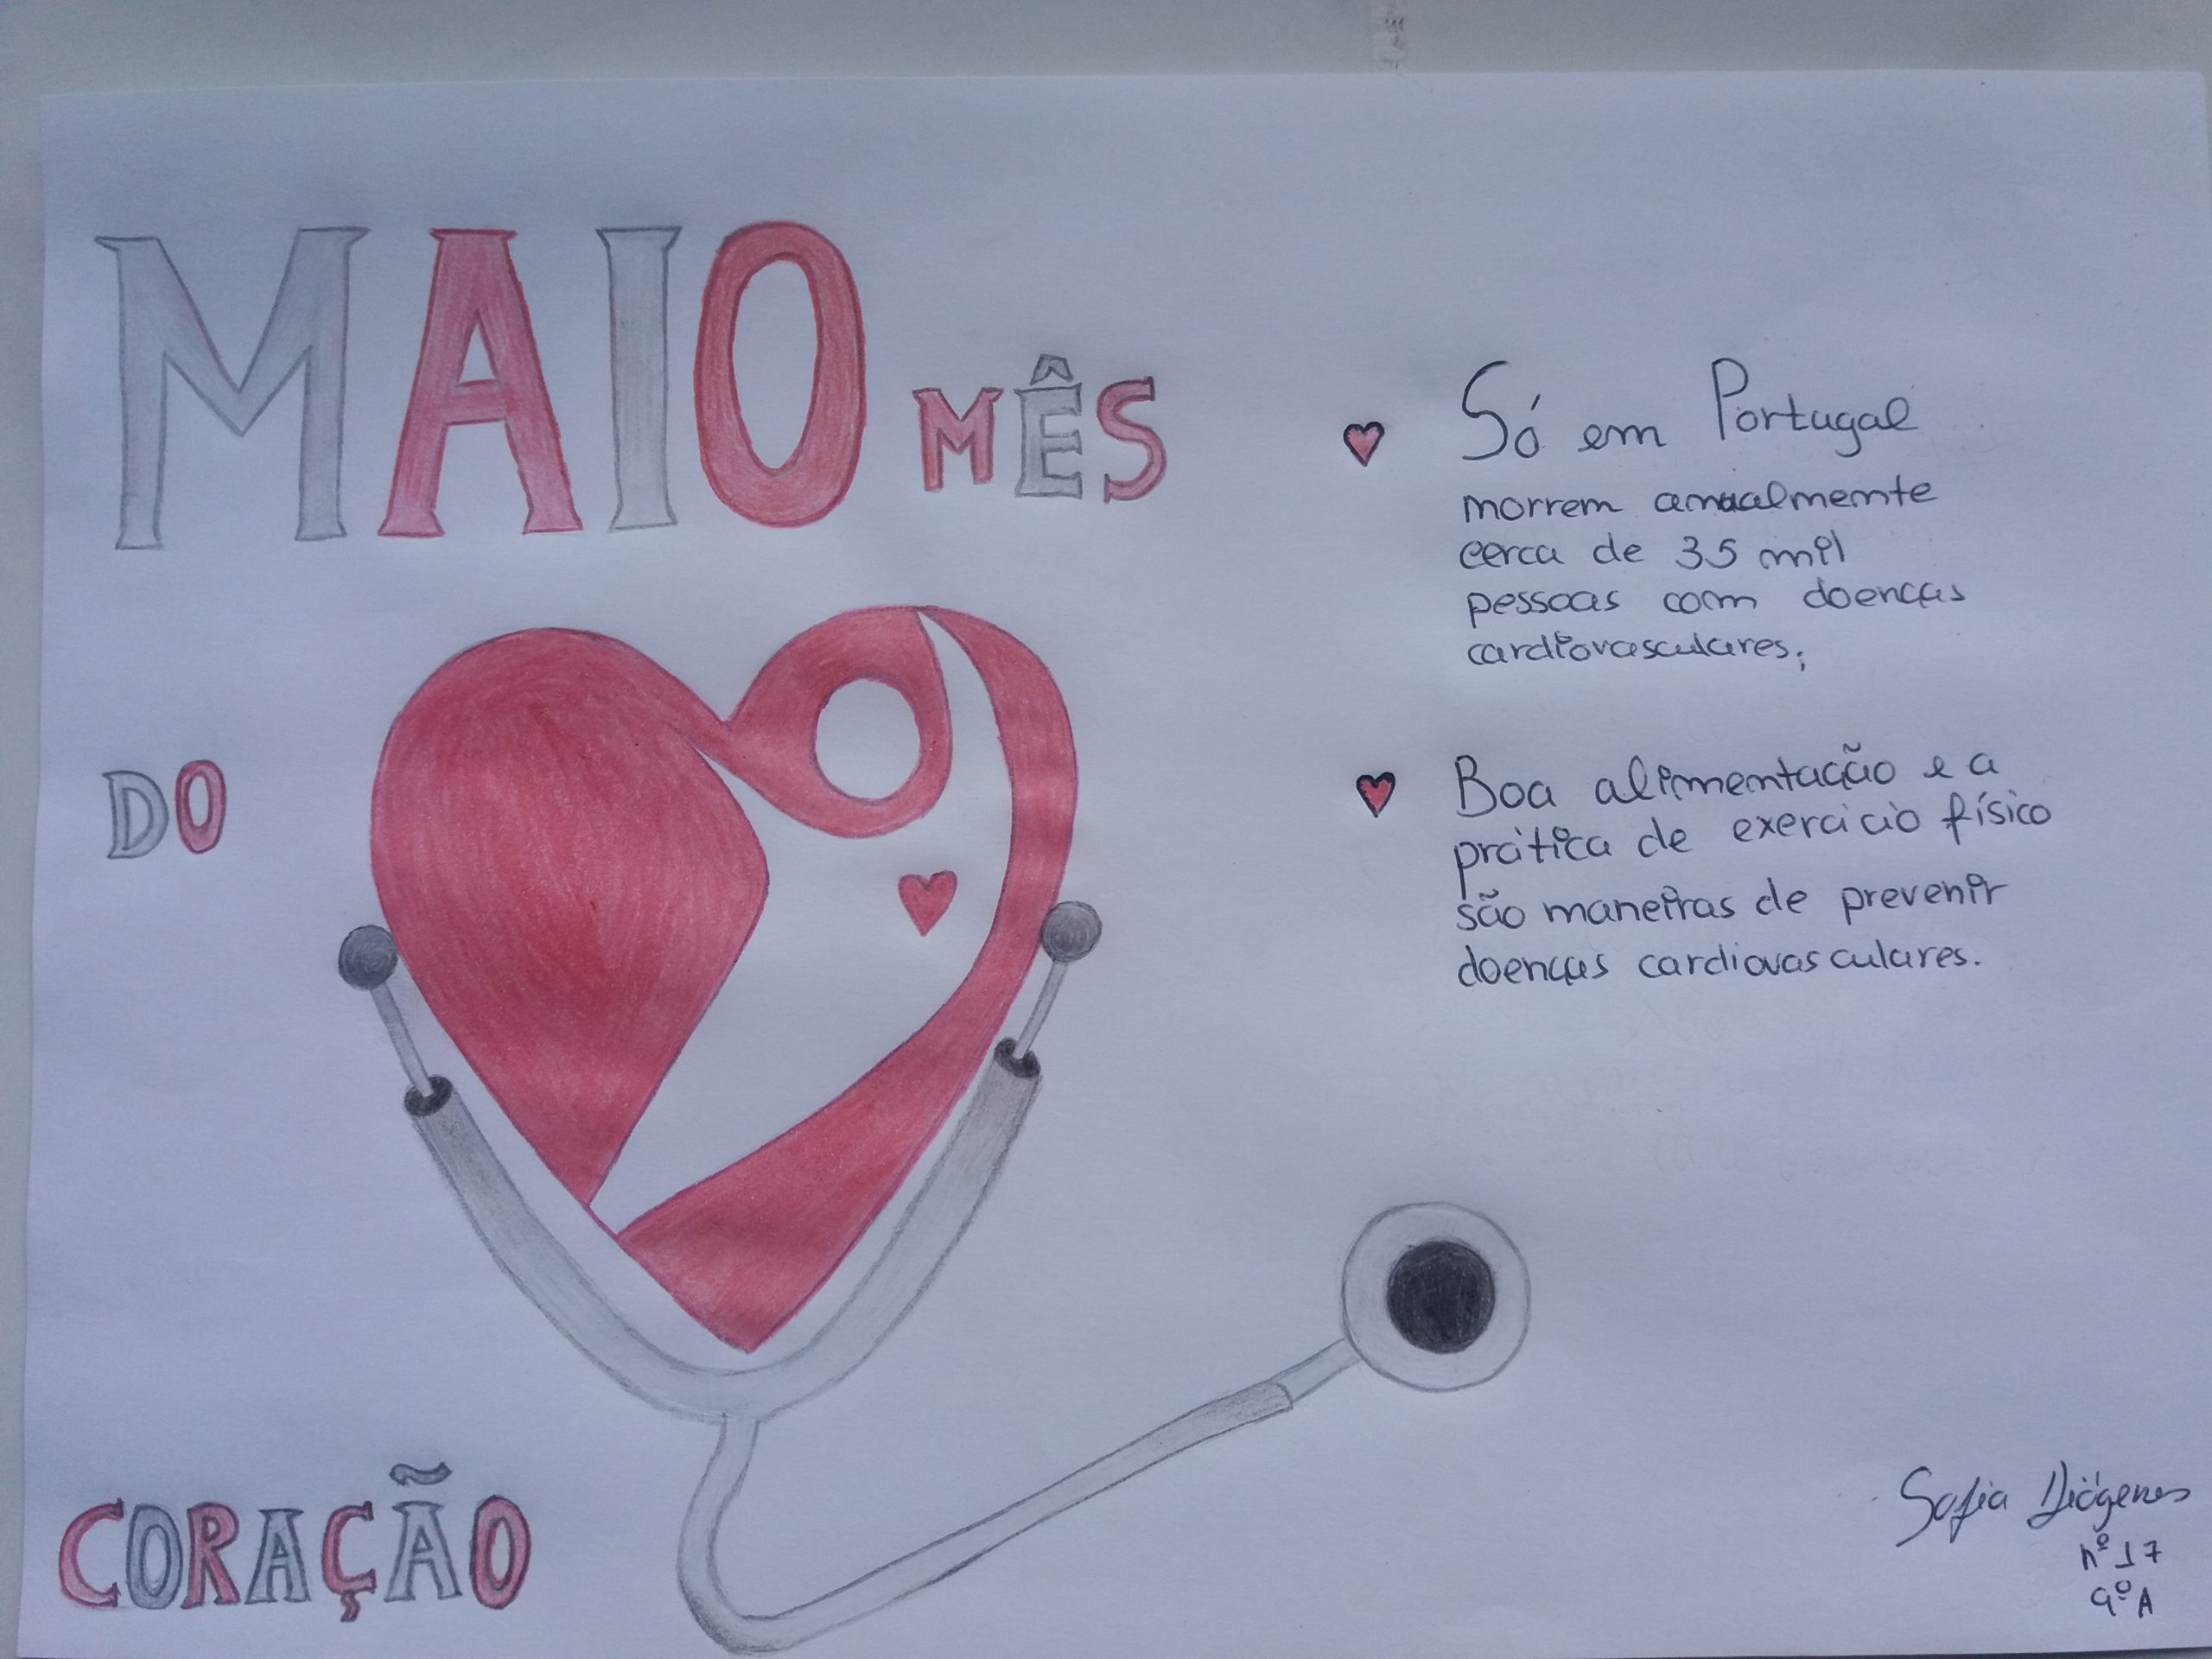 MAIO MÊS
DO
CORAÇÃO
Só em Portugal
morrem anualmente
cerca de 35 mil
pessoas com doenças
cardiovasculares;
Boa alimentação e a
prática de exercício físico
são maneiras de prevenir
doenças cardiovasculares.
Sofia Diógenes
nº 17
9º A